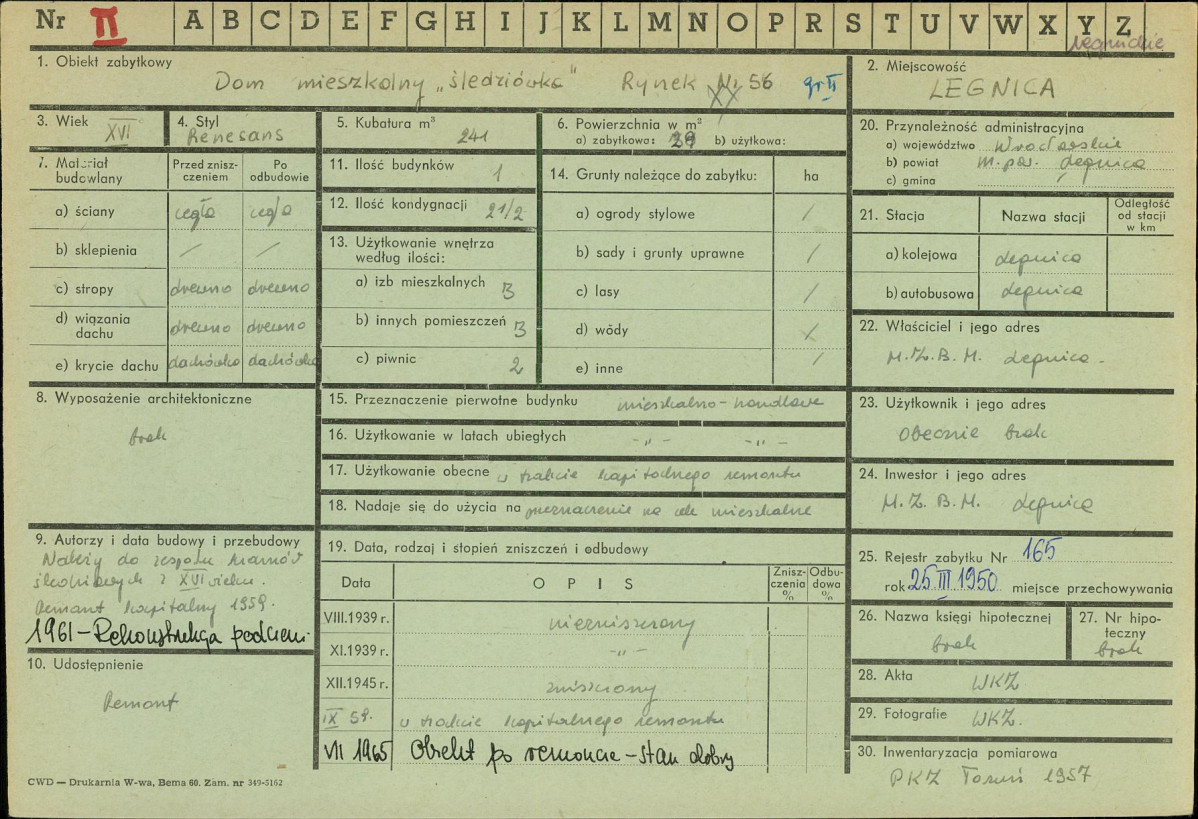 Nr II A B C D E F G H I J K L M N O P R S T U V W X Y Z
legnickie
1. Obiekt zabytkowy
Dom mieszkalny „śledziówka" Rynek Nr 56 gr II
2. Miejscowość
LEGNICA
3. Wiek
XVI
4. Styl
Renesans
5. Kubatura m³
241
6. Powierzchnia w m²
a) zabytkowa: 39 b) użytkowa:
7. Materiał budowlany
Przed zniszczeniem
Po odbudowie
a) ściany cegła cegła
b) sklepienia / /
c) stropy drewno drewno
d) wiązania dachu drewno drewno
e) krycie dachu dachówka dachówka
8. Wyposażenie architektoniczne
brak
9. Autorzy i data budowy i przebudowy
Należy do zespołu kramów
śledziowych z XVI wieku.
Remont kapitalny 1959.
1961 – Rekonstrukcja podcieni.
10. Udostępnienie
Remont
11. Ilość budynków 1
12. Ilość kondygnacji 2 1/2
13. Użytkowanie wnętrza
według ilości:
a) izb mieszkalnych 3
b) innych pomieszczeń 3
c) piwnic 2
14. Grunty należące do zabytku: ha
a) ogrody stylowe /
b) sady i grunty uprawne /
c) lasy /
d) wody /
e) inne /
15. Przeznaczenie pierwotne budynku mieszkalno-handlowe
16. Użytkowanie w latach ubiegłych -„- -„-
17. Użytkowanie obecne w trakcie kapitalnego remontu
18. Nadaje się do użycia na przeznaczenie na cele mieszkalne
19. Data, rodzaj i stopień zniszczeń i odbudowy
Data OPIS Zniszczenia % Odbudowa %
VIII.1939 r. niezniszczony
XI.1939 r. -„-
XII.1945 r. zniszczony
IX 59. w trakcie kapitalnego remontu
VII 1965 Obiekt po remoncie – stan dobry
20. Przynależność administracyjna
a) województwo Wrocławskie
b) powiat m. pow. Legnica
c) gmina /
21. Stacja Nazwa stacji Odległość od stacji w km
a) kolejowa Legnica
b) autobusowa Legnica
22. Właściciel i jego adres
M.Z.B.M. Legnica.
23. Użytkownik i jego adres
Obecnie brak
24. Inwestor i jego adres
M.Z.B.M. Legnica
25. Rejestr zabytku Nr 165
rok 25 III 1950 miejsce przechowywania
26. Nazwa księgi hipotecznej
brak
27. Nr hipoteczny
brak
28. Akta WKZ
29. Fotografie WKZ.
30. Inwentaryzacja pomiarowa
PKZ Toruń 1957
CWD — Drukarnia W-wa, Bema 60. Zam. nr 349-5162